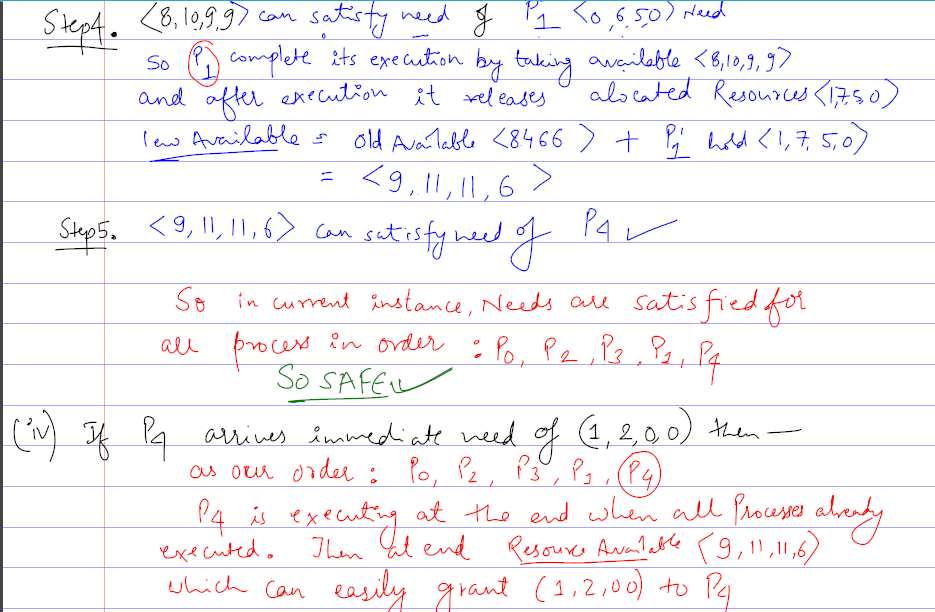 Step4. <8,10,9,9> can satisfy need of P1 <0,6,50> Need
So P1 complete its execution by taking available <8,10,9,9>
and after execution it releases alocated Resources <1,7,5,0>
lew Available = old Available <8466> + P1 hold <1,7,5,0>
= <9,11,11,6>
Step5. <9,11,11,6> can satisfy need of P4 ✓
So in current instance, Needs are satisfied for
all process in order : P0, P2, P3, P1, P4
So SAFE ✓
(iv) If P4 arrives immediate need of (1,2,0,0) then —
as our order : P0, P2, P3, P1, P4
P4 is executing at the end when all Processes already
executed. Then at end Resource Available <9,11,11,6>
which can easily grant (1,2,00) to P4